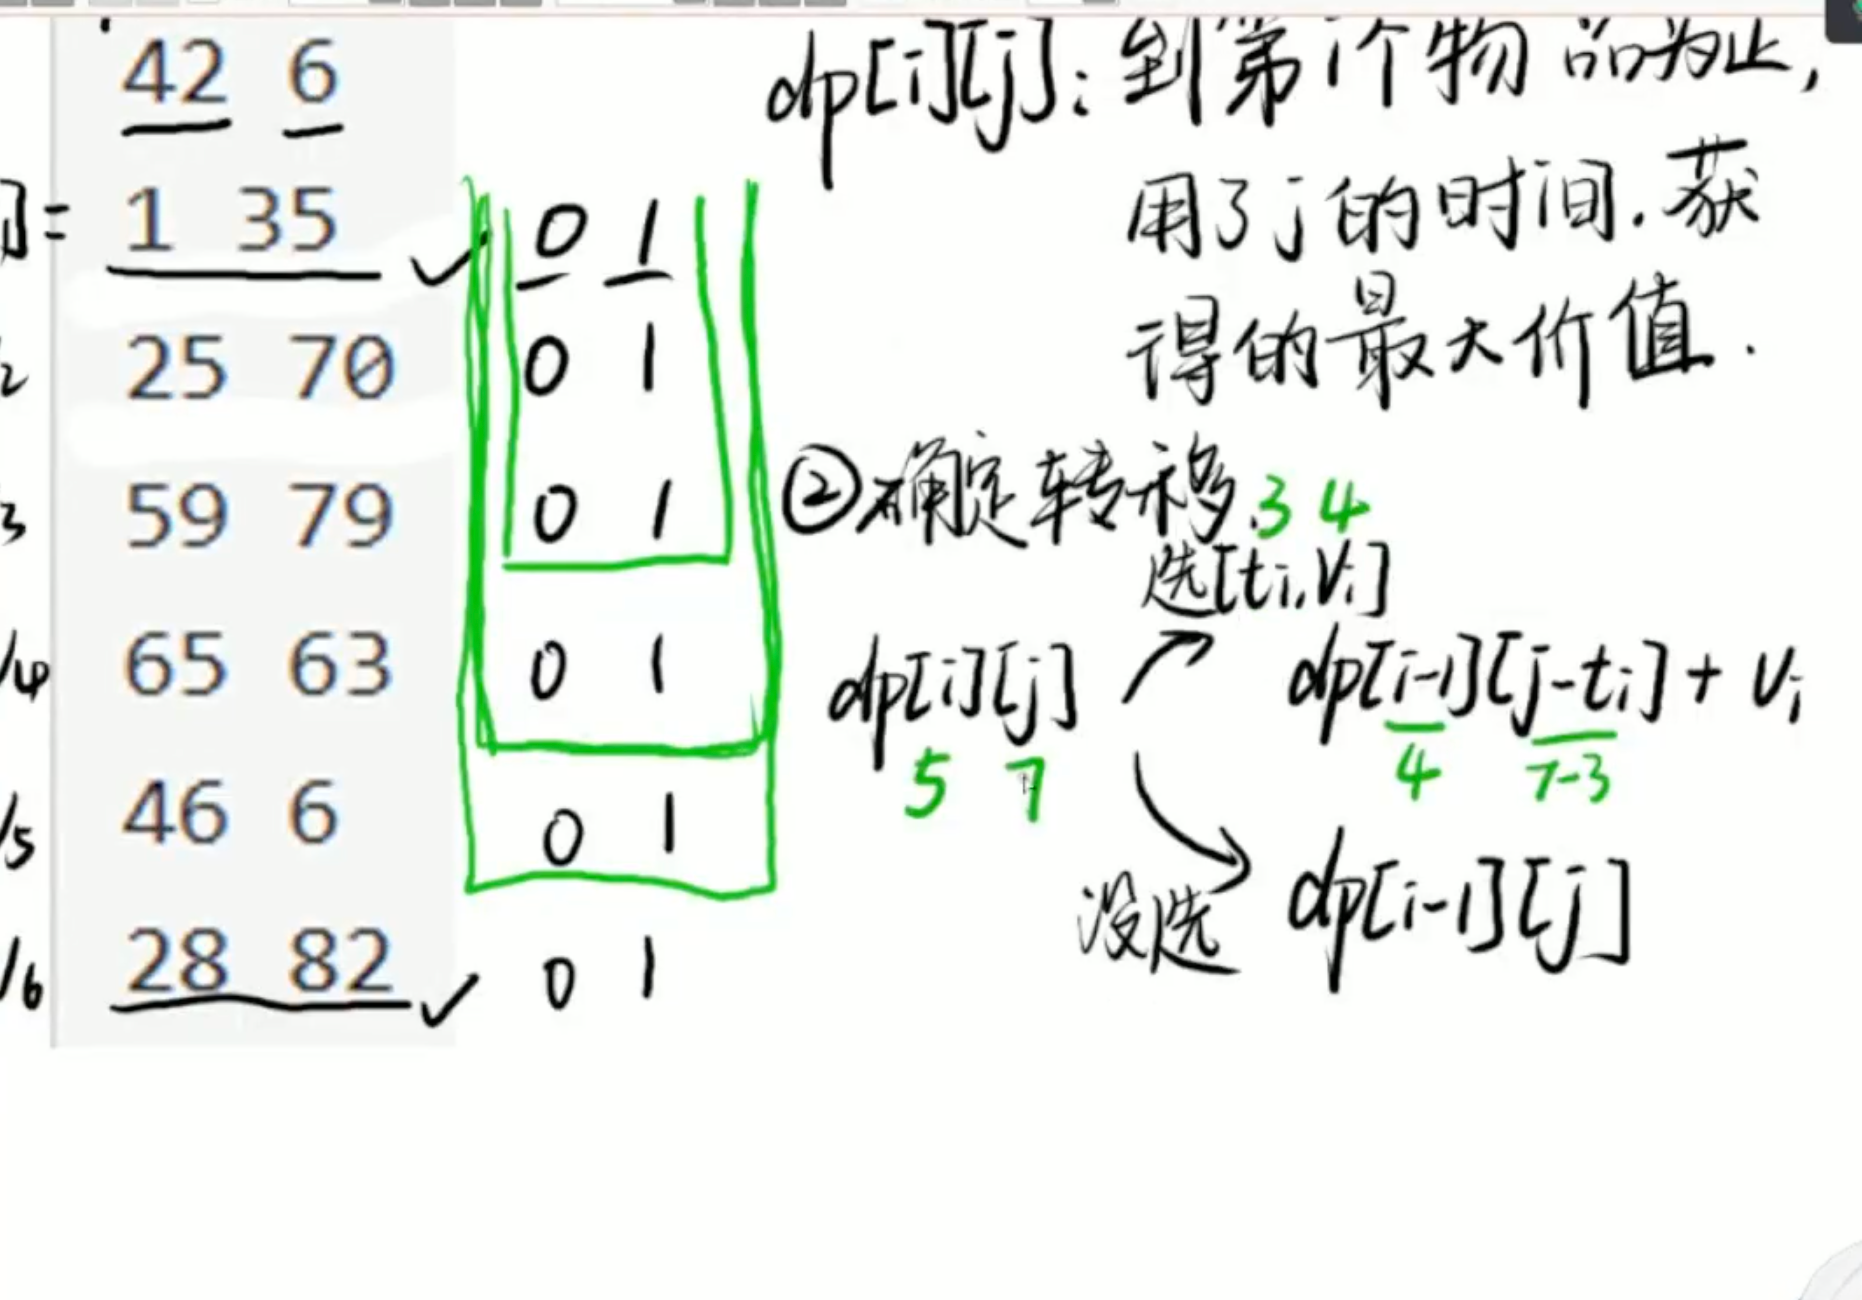 42 6
1 35 0 1
25 70 0 1
59 79 0 1
65 63 0 1
46 6 0 1
28 82 0 1
dp[i][j]: 到第i个物品为止,
用了j的时间.获
得的最大价值.
②确定转移. 3 4
选[ti,Vi]
dp[i][j] dp[i-1][j-ti]+Vi
5 7 4 7-3
没选 dp[i-1][j]